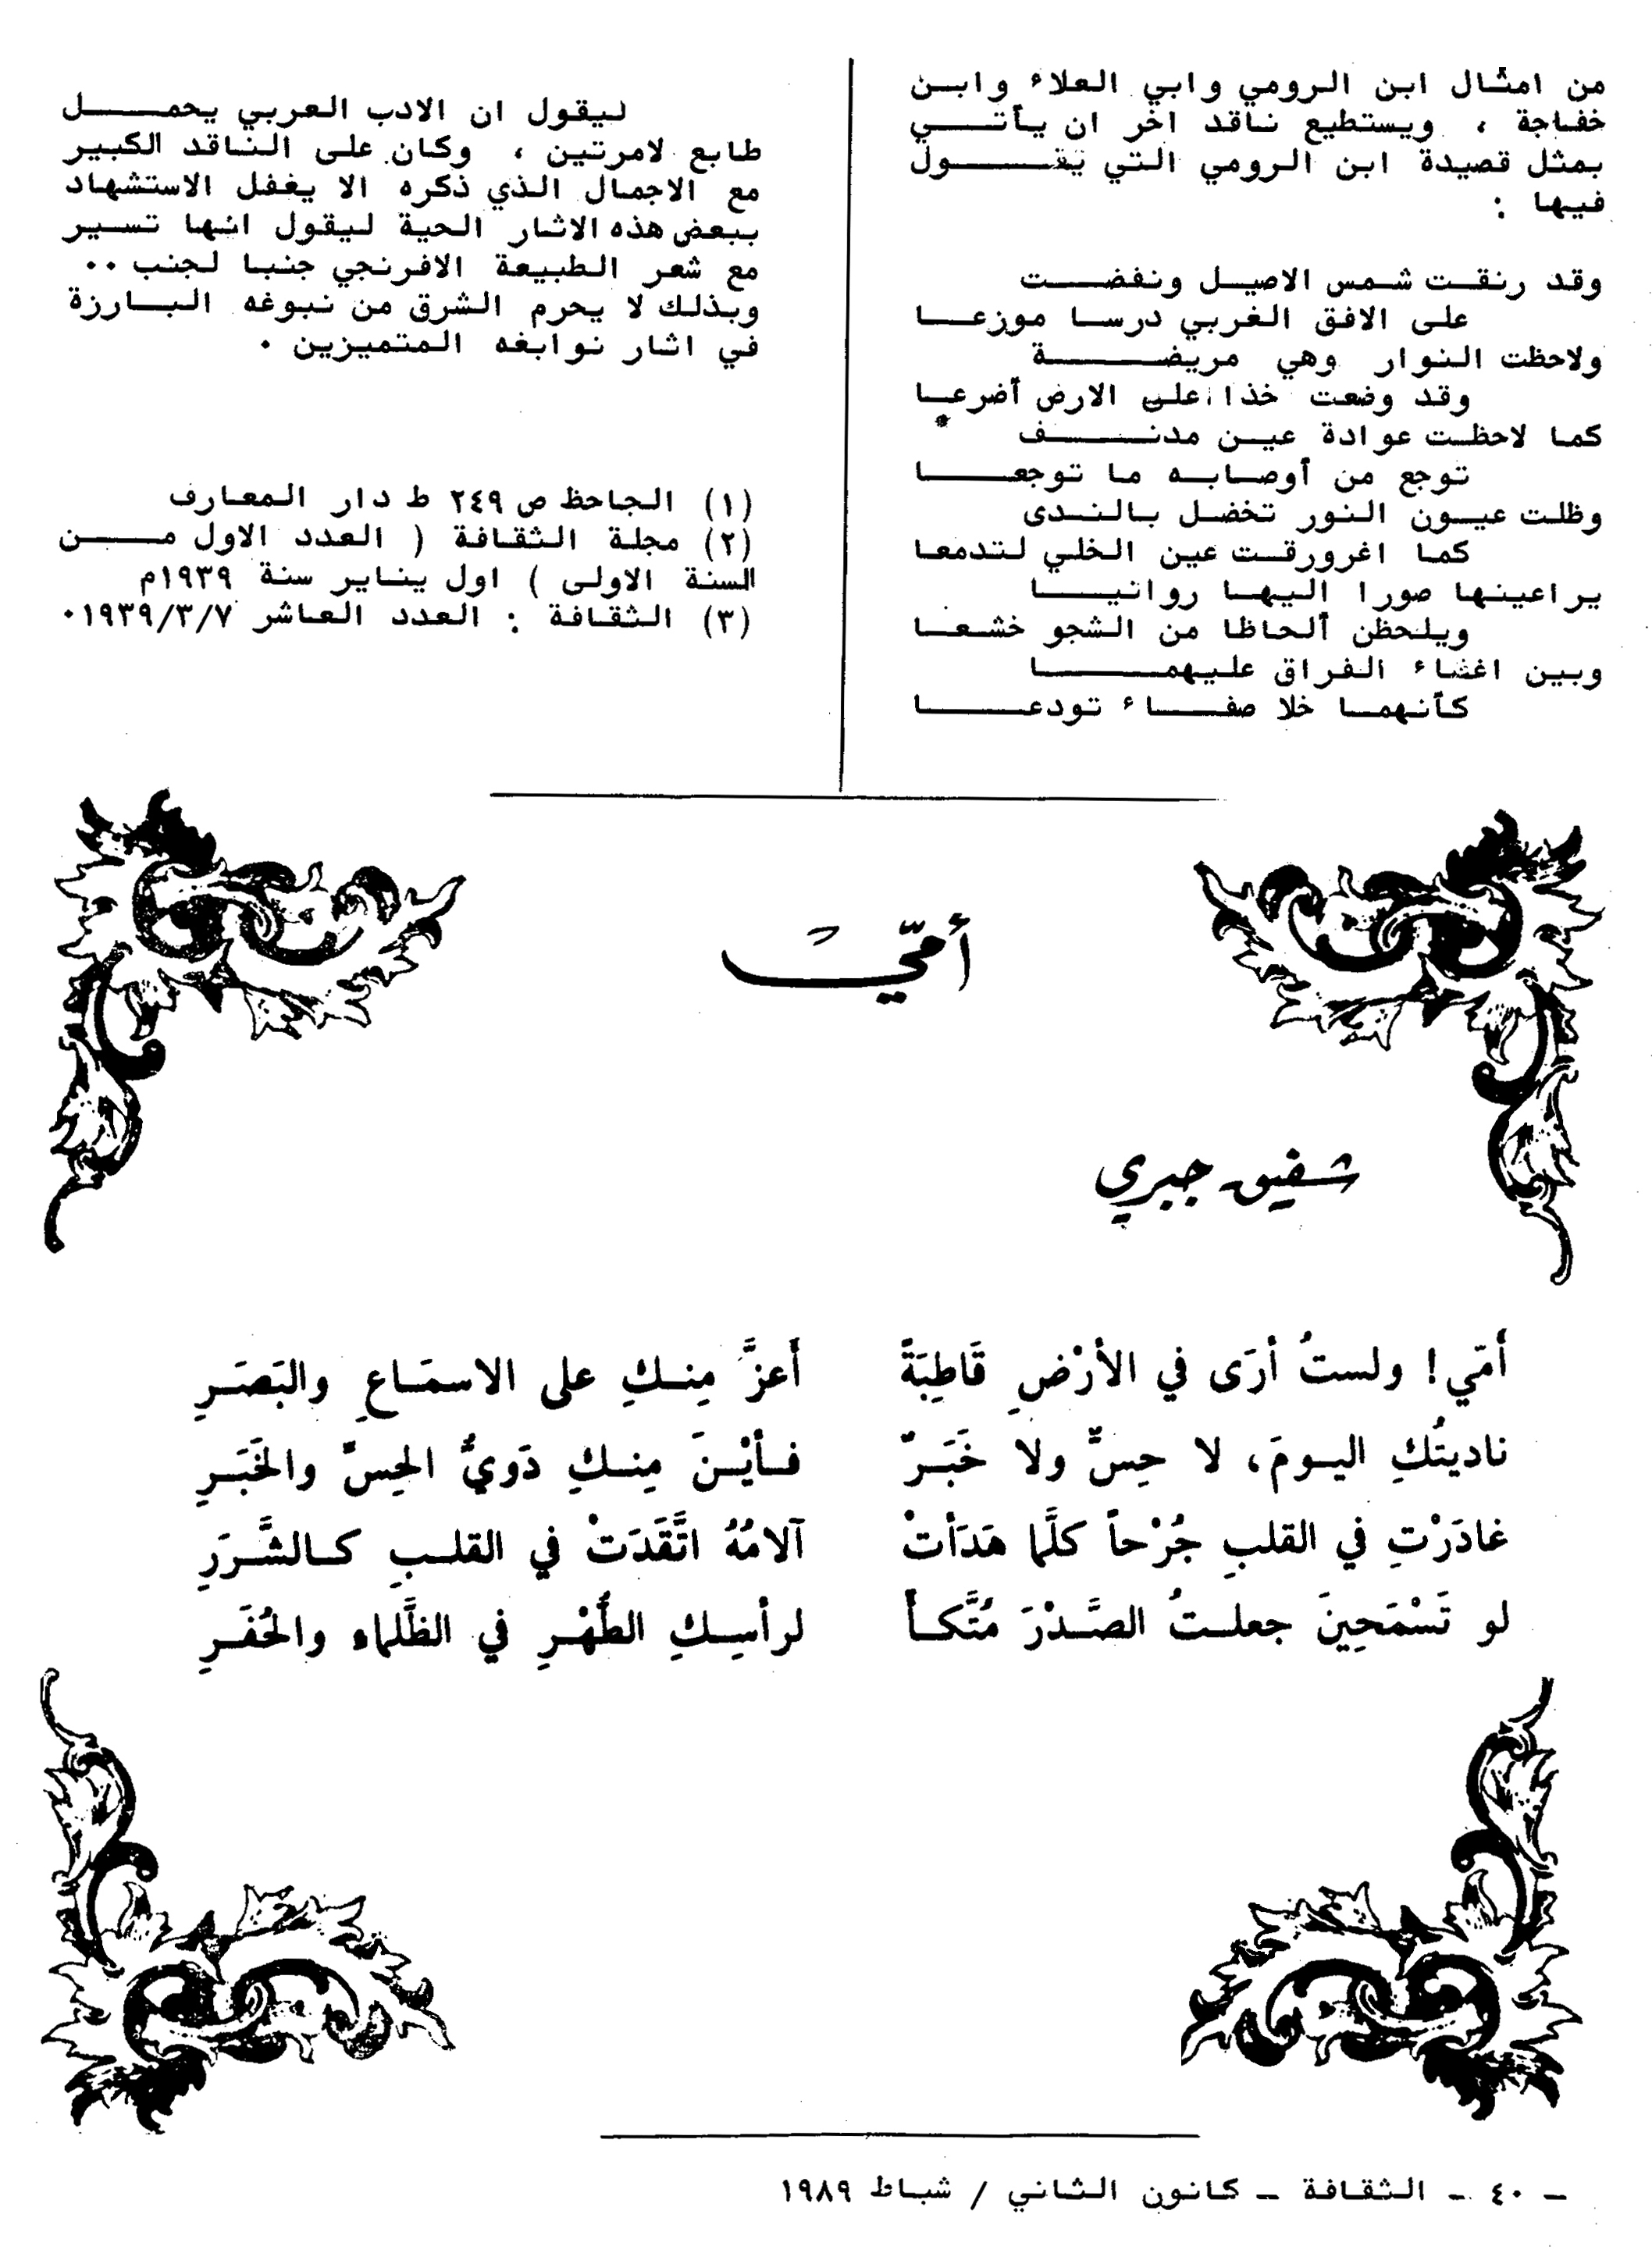 من امثال ابن الرومي وابي العلاء وابن
خفاجة ، ويستطيع ناقد اخر ان يأتي
بمثل قصيدة ابن الرومي التي يقول
فيها :
وقد رنقت شمس الاصيل ونفضت
على الافق الغربي درسا موزعا
ولاحظت النوار وهي مريضة
وقد وضعت خذا على الارض أضرعا
كما لاحظت عوادة عين مدنف
توجع من أوصابه ما توجعا
وظلت عيون النور تخضل بالندى
كما اغرورقت عين الخلي لتدمعا
يراعينها صورا اليها روانيا
ويلحظن ألحاظا من الشجو خشعا
وبين اغضاء الفراق عليهما
كأنهما خلا صفاء تودعا
ليقول ان الادب العربي يحمل
طابع لامرتين ، وكان على الناقد الكبير
مع الاجمال الذي ذكره الا يغفل الاستشهاد
ببعض هذه الاثار الحية ليقول انها تسير
مع شعر الطبيعة الافرنجي جنبا لجنب ..
وبذلك لا يحرم الشرق من نبوغه البارزة
في اثار نوابغه المتميزين .
(١) الجاحظ ص ٢٤٩ ط دار المعارف
(٢) مجلة الثقافة ( العدد الاول من
السنة الاولى ) اول يناير سنة ١٩٣٩م
(٣) الثقافة : العدد العاشر ١٩٣٩/٣/٧.
أمّي
شفيق جبري
أمّي! ولستُ أرَى في الأرْضِ قَاطِبَةً أَعزَّ مِنكِ على الاسمَاعِ والبَصَرِ
ناديتُكِ اليومَ، لا حِسٌّ ولا خَبَرٌ فأيْنَ مِنكِ دَويُّ الحِسِّ والخَبَرِ
غادَرْتِ في القلبِ جُرْحاً كلَّما هَدَأتْ آلامُهُ اتَّقَدَتْ في القلبِ كالشَّرَرِ
لو تَسْمَحِينَ جعلتُ الصَّدْرَ مُتَّكأ لرأسِكِ الطُّهْرِ في الظَّلماء والحُفَرِ
ـ ٤٠ ـ الثقافة ـ كانون الثاني / شباط ١٩٨٩